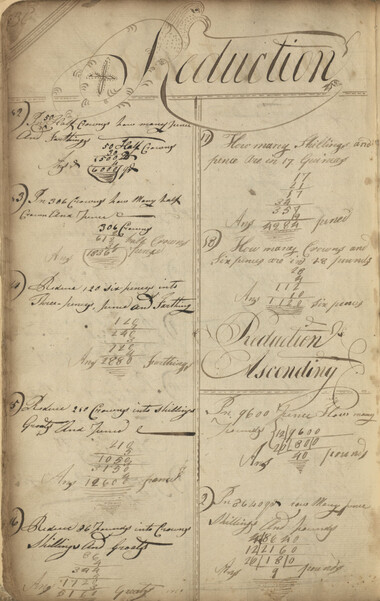 Reduction
2) In 50 Half Crowns how many pence
And Farthings
50 Half Crowns
30
1500 D
4
6000
3) In 306 Crowns how Many half
Crowns And Pence
306 Crowns
2
612 half Crowns
30
Ans 18360 pence
4) Reduce 120 six pences into
Three pences, pence and Farthings
120
2
240
3
720
4
Ans 2880 Farthings
5) Reduce 210 Crowns into Shillings
Groats And Pence
210
5
1050
3
3150
4
Ans 12600 pence
6) Reduce 86 Pounds into Crowns
Shillings And Groats
86
4
344
5
1720
3
Ans 5160 Groats
How many Shillings and
pence are in 17 Guineas
17
21
17
34
357
12
Ans 4284 pence
How many Crowns and
Six pences are in 28 pounds
28
4
112
10
1120 six pences
Reduction
Ascending
In 9600 Pence How many
pounds
12) 9600
20) 800
Ans 40 pounds
2) In 8640 how Many pence
Shillings And pounds
4) 8640
12) 2160
20) 180
Ans 9 pounds